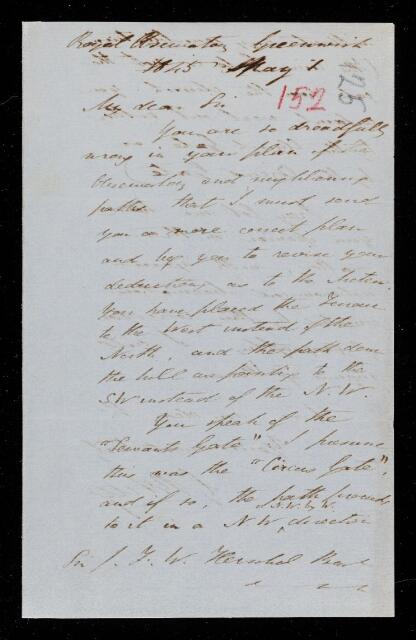 Royal Observatory Greenwich
1845 May 1
152
125
My dear Sir
You are so dreadfully
wrong in your plan of the
Observatory and neighbouring
paths that I must send
you a more correct plan
and beg you to revise your
deductions as to the
You have placed the Terrace
to the West instead of the
North, and the path down
the hill as pointing to the
SW instead of the N.W.
You speak of the
"Servants Gate". I presume
this was the "Circus Gate",
and if so, the path proceeds
N.W. by W.
to it in a NW, direction
Sir J. F. W. Herschel Bart